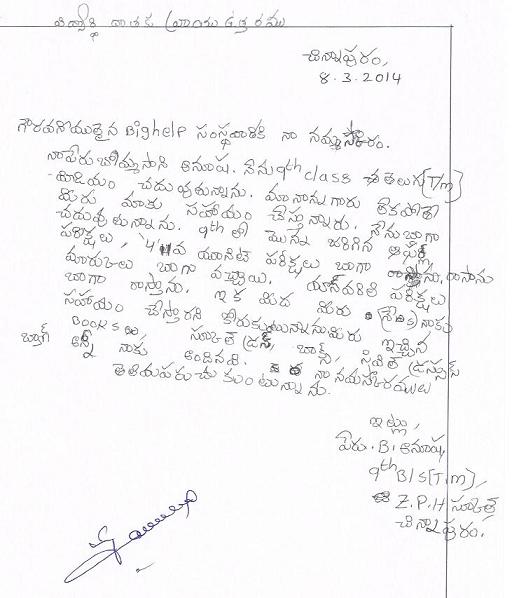 విద్యార్థి దాతకు వ్రాయు ఉత్తరము
చిన్నాపురం,
8.3.2014
గౌరవనీయులైన Bighelp సంస్థవారికి నా నమస్కారం.
నాపేరు బొమ్మసాని అనూష. నేను 9th class తెలుగు (T/m)
మీడియం చదువుతున్నాను. మా నాన్నగారు లేకపోతే
మీరు మాకు సహాయం చేస్తున్నారు. నేను బాగా
చదువుతున్నాను. 9th లో మొన్న జరిగిన
పరీక్షలు, '4'వ యూనిట్ పరీక్షలు బాగా రాసాను
మార్కులు బాగా వచ్చాయి. పరీక్షలు
బాగా రాస్తాను. ఇక మీద మీరు నాకు
సహాయం చేస్తారని కోరుకుటున్నాను మీరు ఇచ్చిన
Books స్కూల్ డ్రస్, బాక్స్, సివిల్ డ్రస్సుక్
బ్యాగ్ అన్నీ నాకు అందినవి. నా నమస్కారములు
తెలియపరుచుకుంటున్నాను.
ఇట్లు,
పేరు. B. అనూష,
9th B/s (T.m),
Z.P.H స్కూల్
చిన్నాపురం.